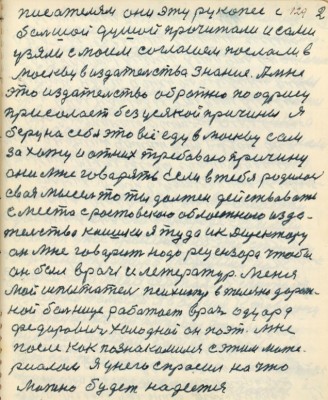 писателям они эту рукопес с 129 2
большой душий прочитали и сами
узяли с моим согласием послали в
москву в издательства знание. А мне
это издательство обратно по адрису
присолает без усякой причины я
беру на себя это всё еду в москву сам
захожу и отних требаваю причину
они мне говарять если в тебя родилос
своя мысел то ты должен действавать
с места с ростовского областного изда-
тельство книшки я туда ик директору
он мне говарит надо рецензора чтобы
он был врач и летератур. меня
мой испытател психиатр в железно дорож-
ной больнице работает врач едуард
федорович холодной он поэт. мне
после как познакомился с этим мате-
риалом я унего спросил на что
можно будет надеется